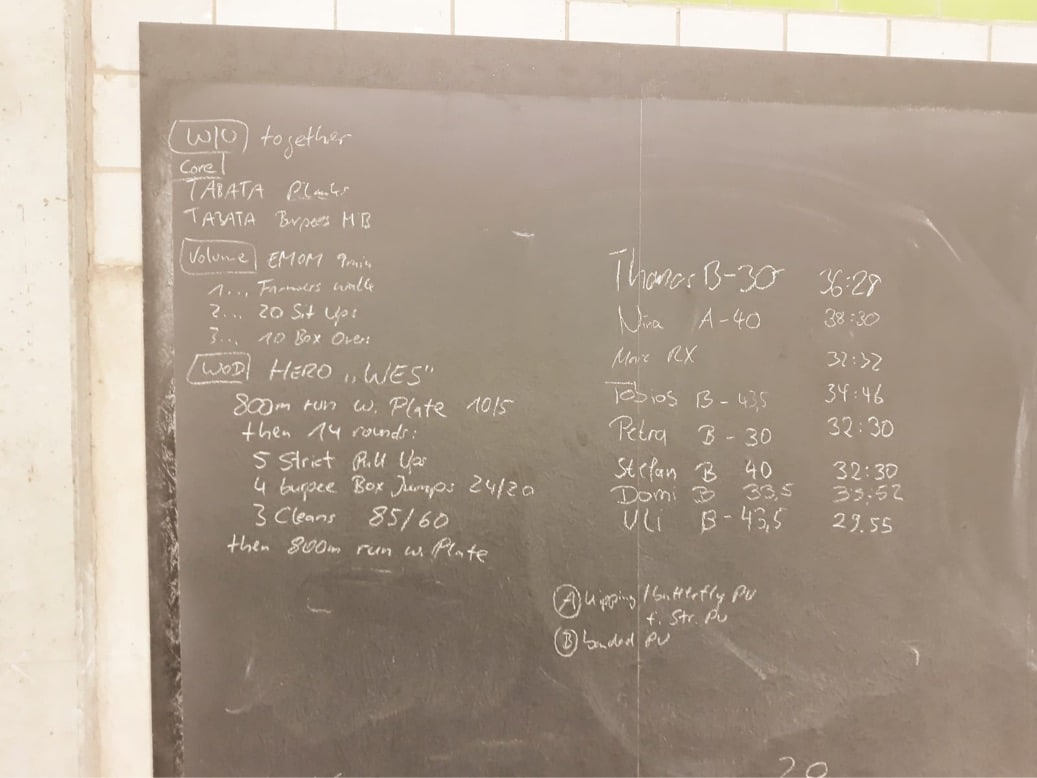 W/U together
Core
TABATA Planks
TABATA Burpees MB
Volume EMOM 9min
1... Farmers walk
2... 20 Sit Ups
3... 10 Box Overs
WOD HERO „WES"
800m run w. Plate 10/5
then 14 rounds:
5 Strict Pull Ups
4 burpee Box Jumps 24/20
3 Cleans 85/60
then 800m run w. Plate
Thomas B-30 36:28
Nina A-40 38:30
RX 32:32
Tobias B-43,5 34:46
Petra B-30 32:30
Stefan B 40 32:30
Domi B 33,5 33:52
Uli B-43,5 29.55
A kipping/butterfly PU
f. Str. PU
B banded PU
20